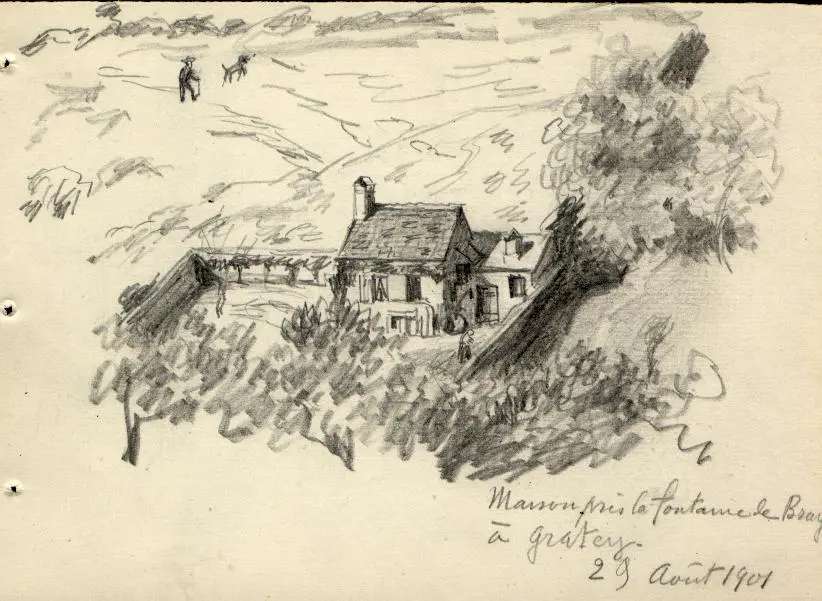 Maison près la fontaine de Bray
à Gratey.
29 Août 1901